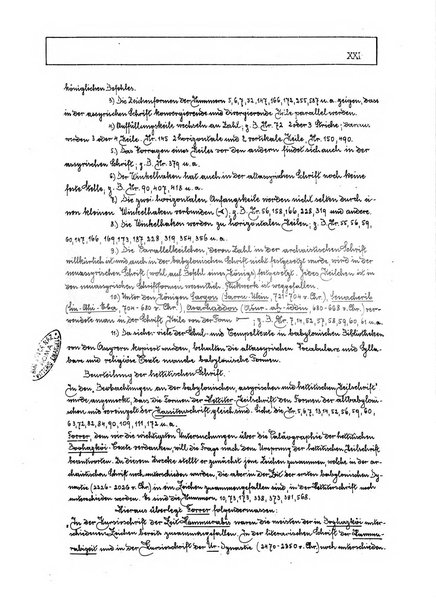 XXI
königlichen Befehles.
3) Die Zeichenformen der Nummern 5, 6, 7, 32, 147, 166, 172, 255, 537 u. a. zeigen, dass
in der assyrischen Schrift konvergierende und divergierende Keile parallel werden.
4) Auffüllungskeile wechseln an Zahl; z. B. Nr. 72 2 oder 3 Striche; darum
werden 3 oder 4 Keile. Nr. 145 2 horizontale und 2 vertikale Keile, Nr. 150, 490.
5) Das Vorragen eines Keiles vor den andern findet sich auch in der
assyrischen Schrift; z. B. Nr. 379 u. a.
6) Der Winkelhaken hat auch in der altassyrischen Schrift noch keine
feste Stelle, z. B. 90, 407, 418 u. a.
7) Die zwei horizontalen Anfangskeile werden nicht selten durch ei-
nen kleinen Winkelhaken verbunden z. B. Nr. 56, 158, 166, 228, 319 und andere.
8) Die Winkelhaken werden zu horizontalen Keilen; z. B. Nr. 55, 56, 59,
60, 147, 166, 169, 173, 187, 228, 319, 354, 356 u. a.
9) Die Parallelkeilchen, deren Zahl in der archaistischen Schrift
willkürlich ist und auch in der babylonischen Schrift nicht festgesetzt wurde, wird in der
neuassyrischen Schrift (wohl auf Befehl eines Königs) festgesetzt. Jedes Keilchen ist in
den neuassyrischen Schriftformen wesentlich, Füllwerk ist weggefallen.
10) Unter den Königen Sargon 721-704 v. Chr.), Sanacherib
704-680 v. Chr.), 680-668 v. Chr.) ver-
wendete man in der Schrift Keile von der Form z. B. Nr. 7, 14, 52, 57, 58, 59, 60, 61 u. a.
11) Da sicher viele der Schul- und Tempeltexte in babylonischen Bibliotheken
von den Assyrern kopiert wurden, behalten die altassyrischen Vocabulare und Sylla-
bare und religiöse Texte manche babylonische Formen.
Beurteilung der hettitischen Schrift.
In den „Beobachtungen an der babylonischen, assyrischen und hettitischen Keilschrift"
wurde angemerkt, dass die Formen der Hettiter-Keilschrift den Formen der altbabyloni-
schen und vereinzelt der Kassitenschrift gleich sind. Siehe die Nr. 5, 6, 7, 13, 14, 52, 56, 59, 60,
63, 72, 82, 84, 90, 109, 111, 172 u. a.
Forrer, dem wir die wichtigsten Untersuchungen über die Paläographie der hettitischen
Boghazköi-Texte verdanken, will die Frage nach dem Ursprung der hettitischen Keilschrift
beantworten. In diesem Zwecke stellt er zunächst jene Zeichen zusammen, welche in der ar-
chaistischen Schrift noch unterschieden werden, die aber in der Zeit der ersten babylonischen Dy-
nastie (2226-2026 v. Chr.) in ein Zeichen zusammengefallen sind, in der Hettiterschrift noch
unterschieden werden. Es sind die Nummern 10, 73, 173, 338, 373, 381, 568.
Hieraus überlegt Forrer folgendermassen:
„In der Kursivschrift der Zeit Hammurabis waren die meisten der in Boghazköi unter-
schiedenen Zeichen bereits zusammengefallen. In der literarischen Schrift der Hammu-
rabizeit und in der Kursivschrift der Ur-Dynastie (2470-2350 v. Chr.) noch unterschieden.